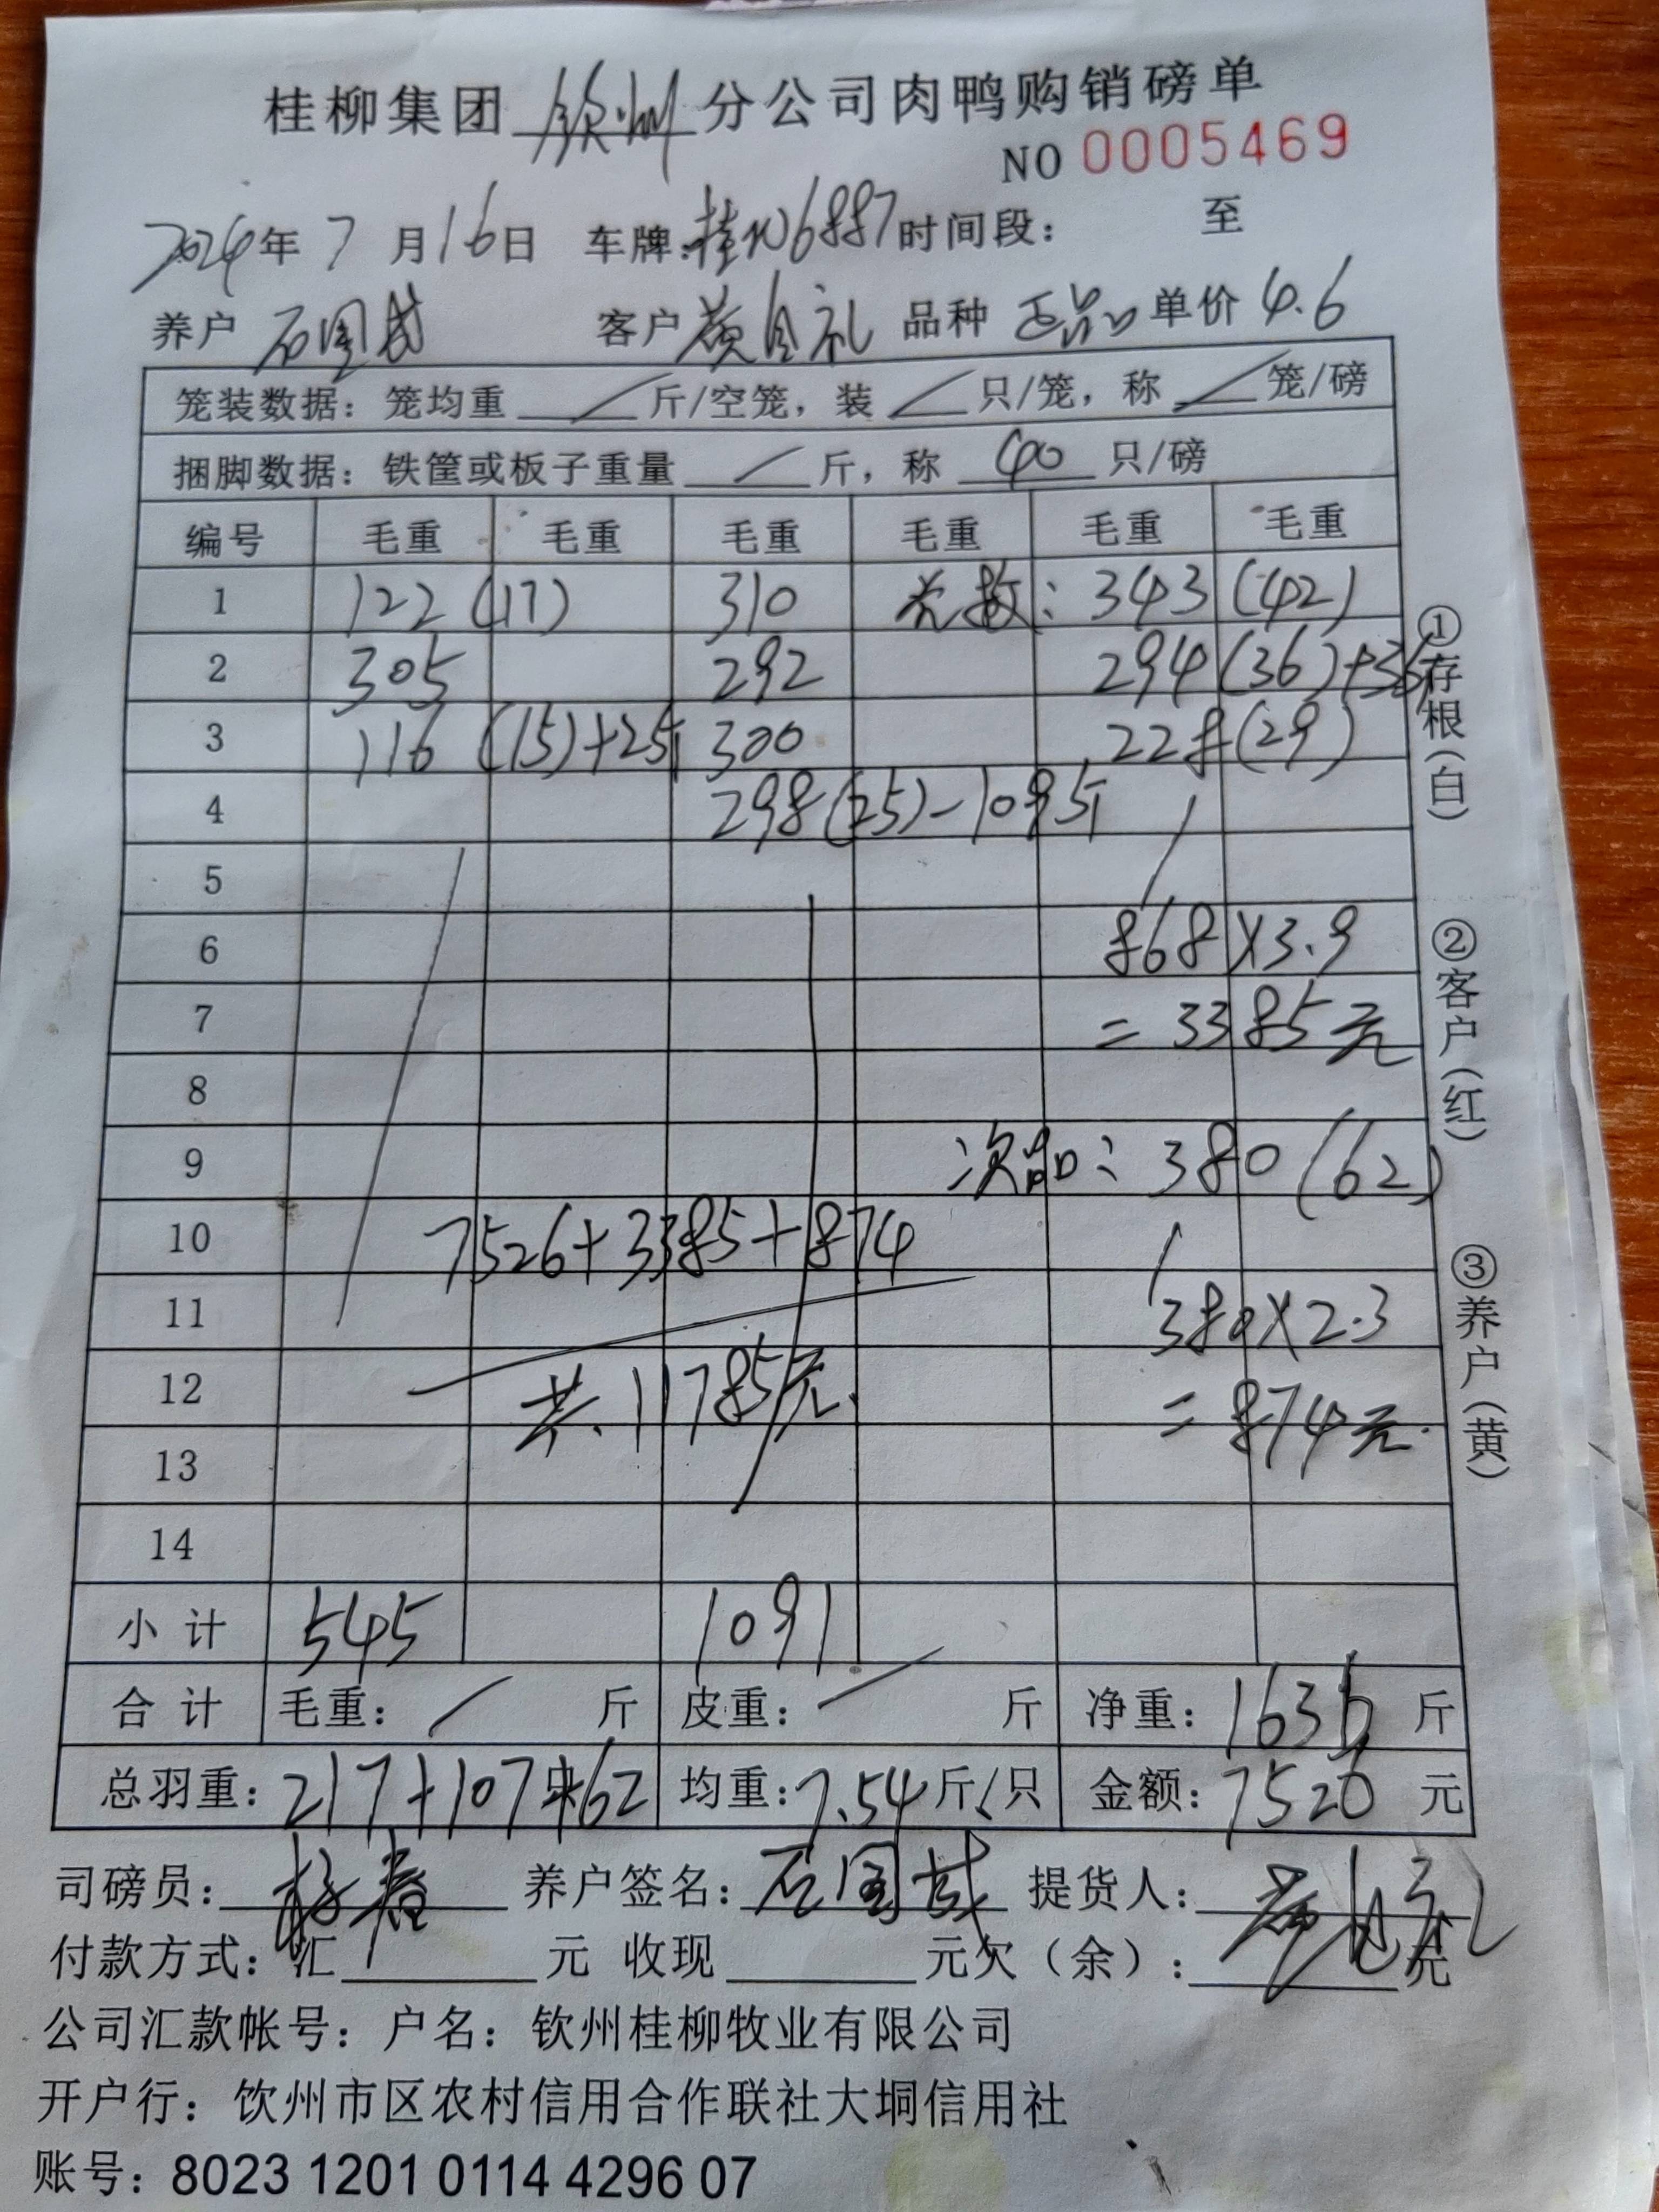 桂柳集团 钦州 分公司肉鸭购销磅单
NO 0005469
2024年 7 月 16日 车牌:桂N06887 时间段: 至
养户 石国 客户 黄 礼 品种 正品 单价 4.6
笼装数据: 笼均重 / 斤/空笼, 装 / 只/笼, 称 / 笼/磅
捆脚数据: 铁筐或板子重量 / 斤, 称 40 只/磅
编号 毛重 毛重 毛重 毛重 毛重 毛重
1 122 (17) 310 : 343 (42)
2 305 292 294 (36)
3 116 (15)+25斤 300 228 (29)
4 298 (25)-109斤
5
6 868×3.9
7 =3385元
8
9 次品: 380 (62)
10 7526+3385+874
11 380×2.3
12 共.11785元. =874元.
13
14
小计 545 1091
合计 毛重: / 斤 皮重: / 斤 净重: 1636 斤
总羽重: 217+107+62 均重: 7.54 斤/只 金额: 7526 元
司磅员: 养户签名: 石国 提货人: 礼
付款方式: 汇 元 收现 元欠(余): 元
公司汇款帐号: 户名: 钦州桂柳牧业有限公司
开户行: 钦州市区农村信用合作联社大垌信用社
账号: 8023 1201 0114 4296 07
①存根(白)
②客户(红)
③养户(黄)